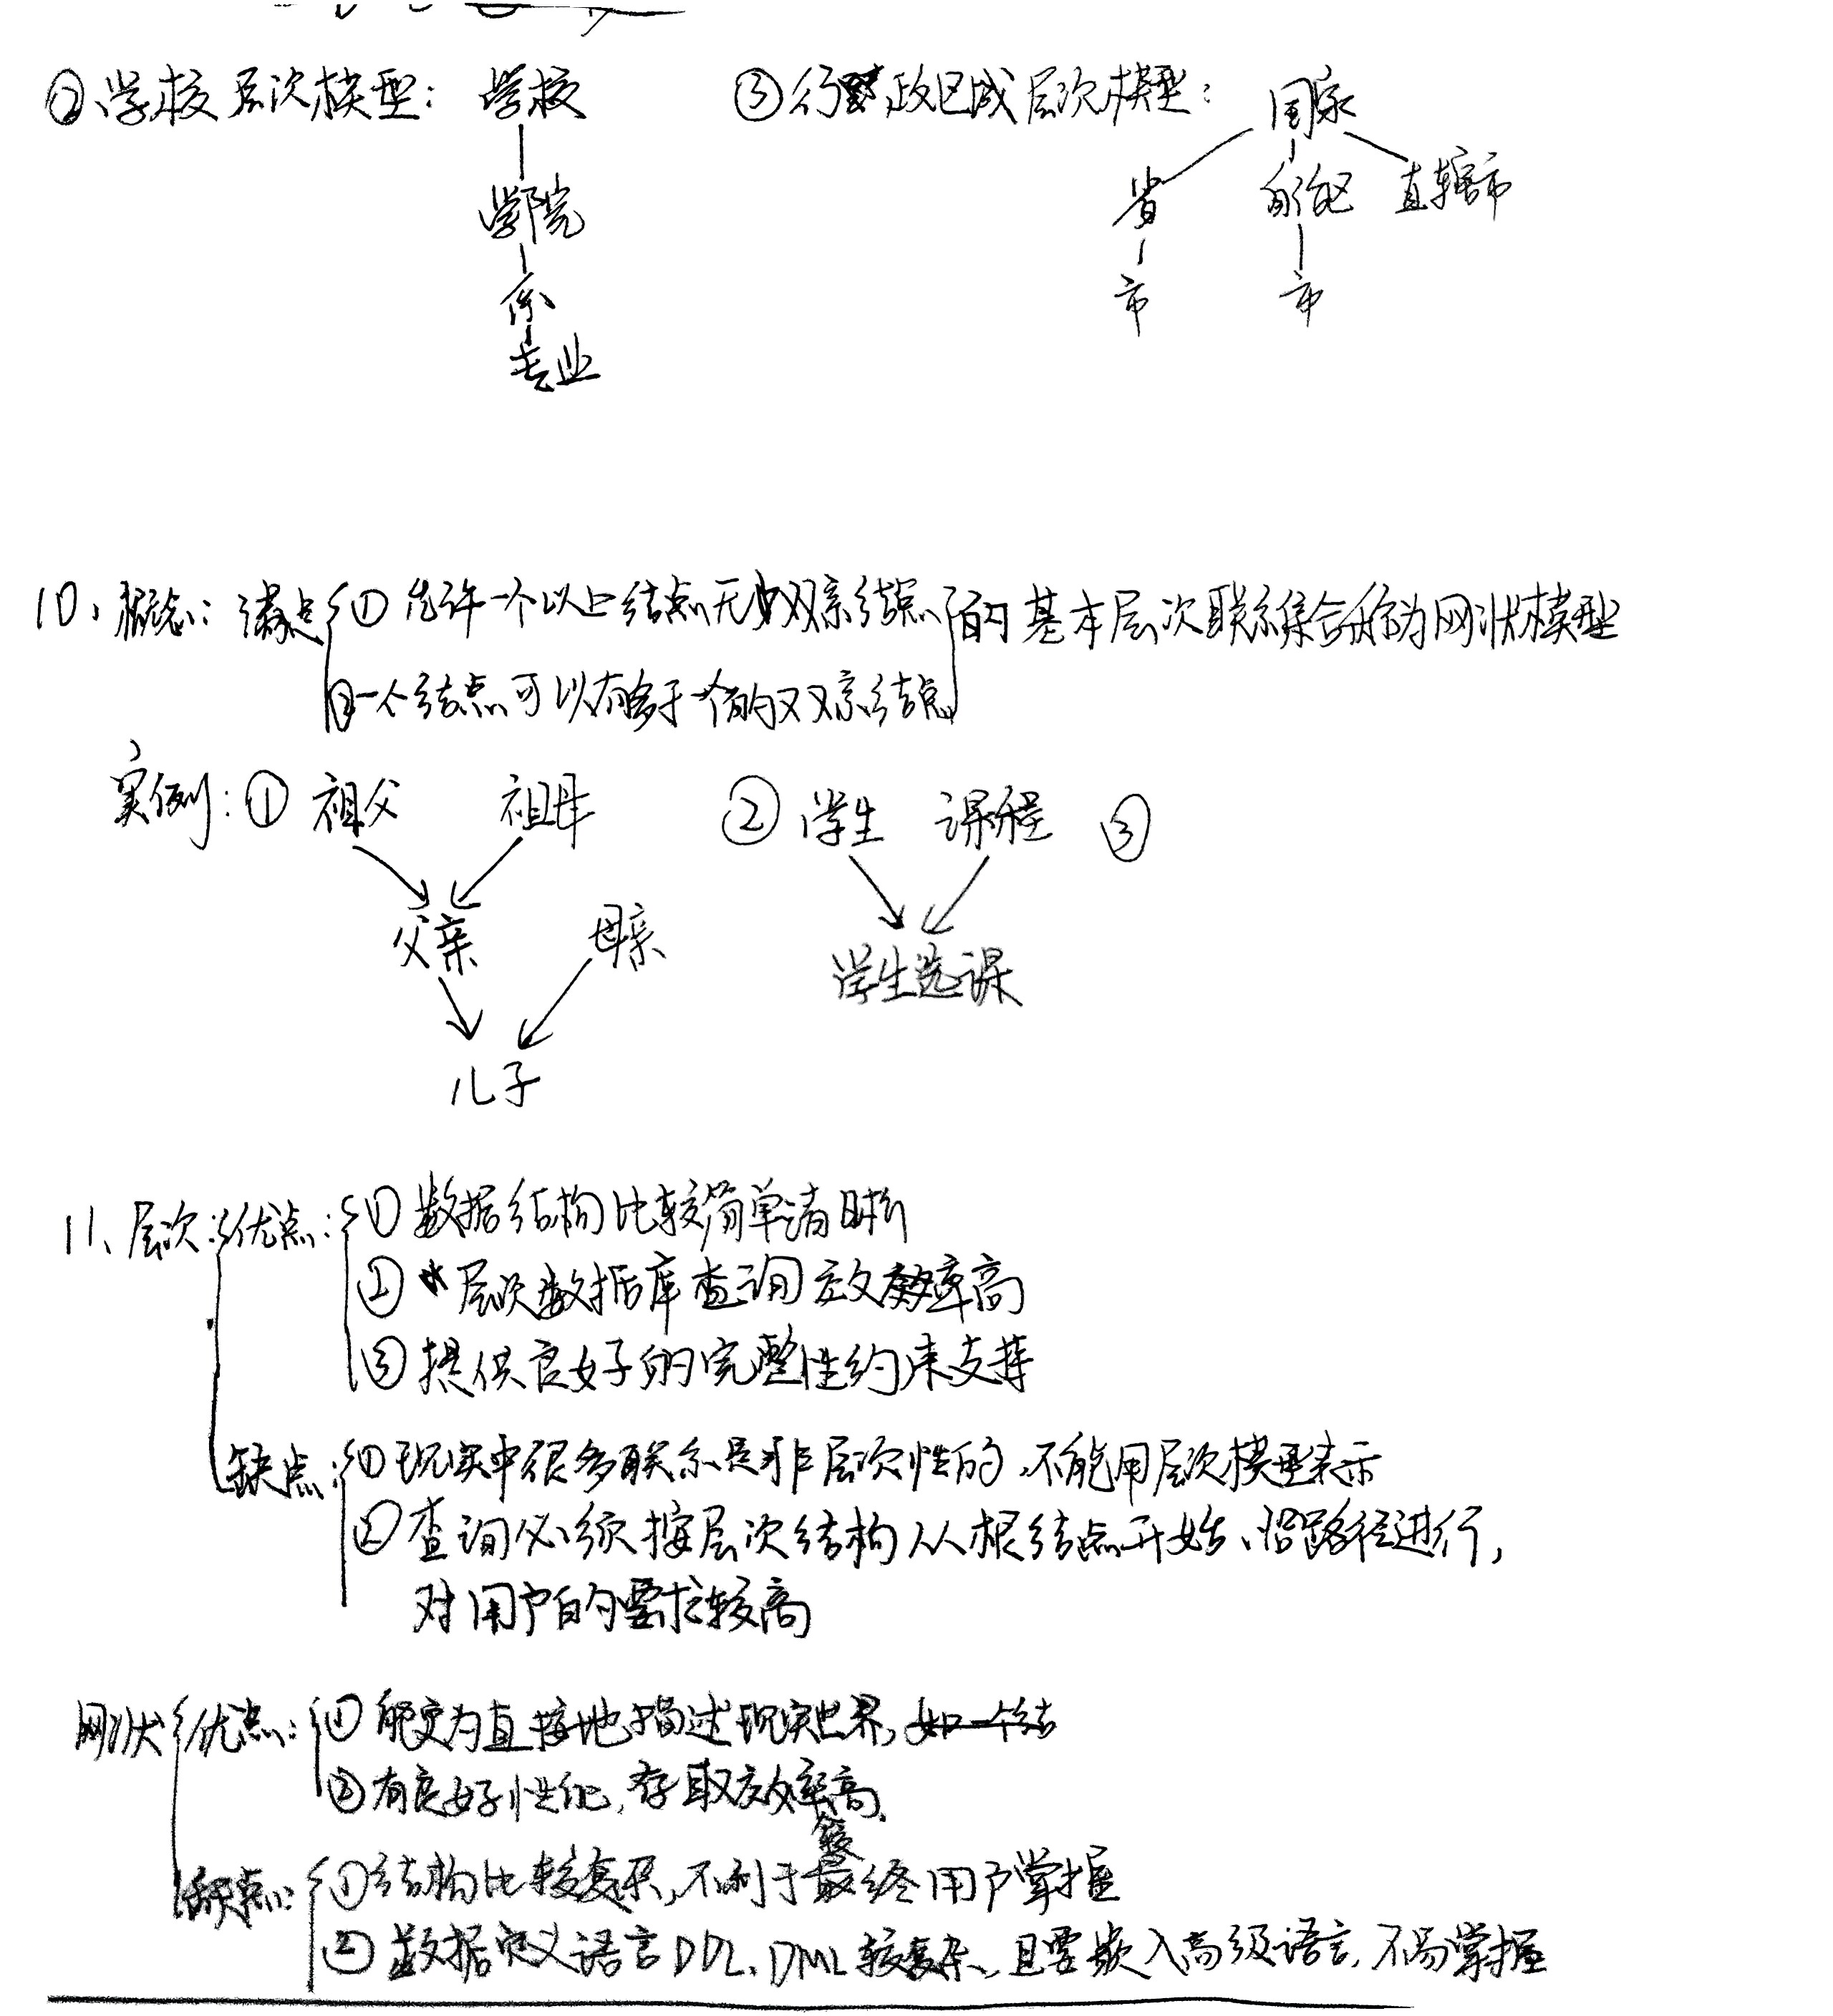 ②、学校层次模型：学校
③行政区域层次模型：国家
学院
省 自治区 直辖市
系
市 市
专业
10、概念：满足①允许一个以上结点无双亲结点的基本层次联系集合称为网状模型
②一个结点可以有多于一个的双亲结点
实例：①祖父 祖母 ②学生 课程 ③
父亲 母亲 学生选课
儿子
11、层次：优点：①数据结构比较简单清晰
②层次数据库查询效率高
③提供良好的完整性约束支持
缺点：①现实中很多联系是非层次性的，不能用层次模型表示
②查询必须按层次结构从根结点开始、沿路径进行，
对用户的要求较高
网状 优点：①能更为直接地描述现实世界，如一个结
②有良好性能，存取效率高
缺点：①结构比较复杂，不利于最终用户掌握
②数据定义语言DDL、DML较复杂，且要嵌入高级语言，不易掌握